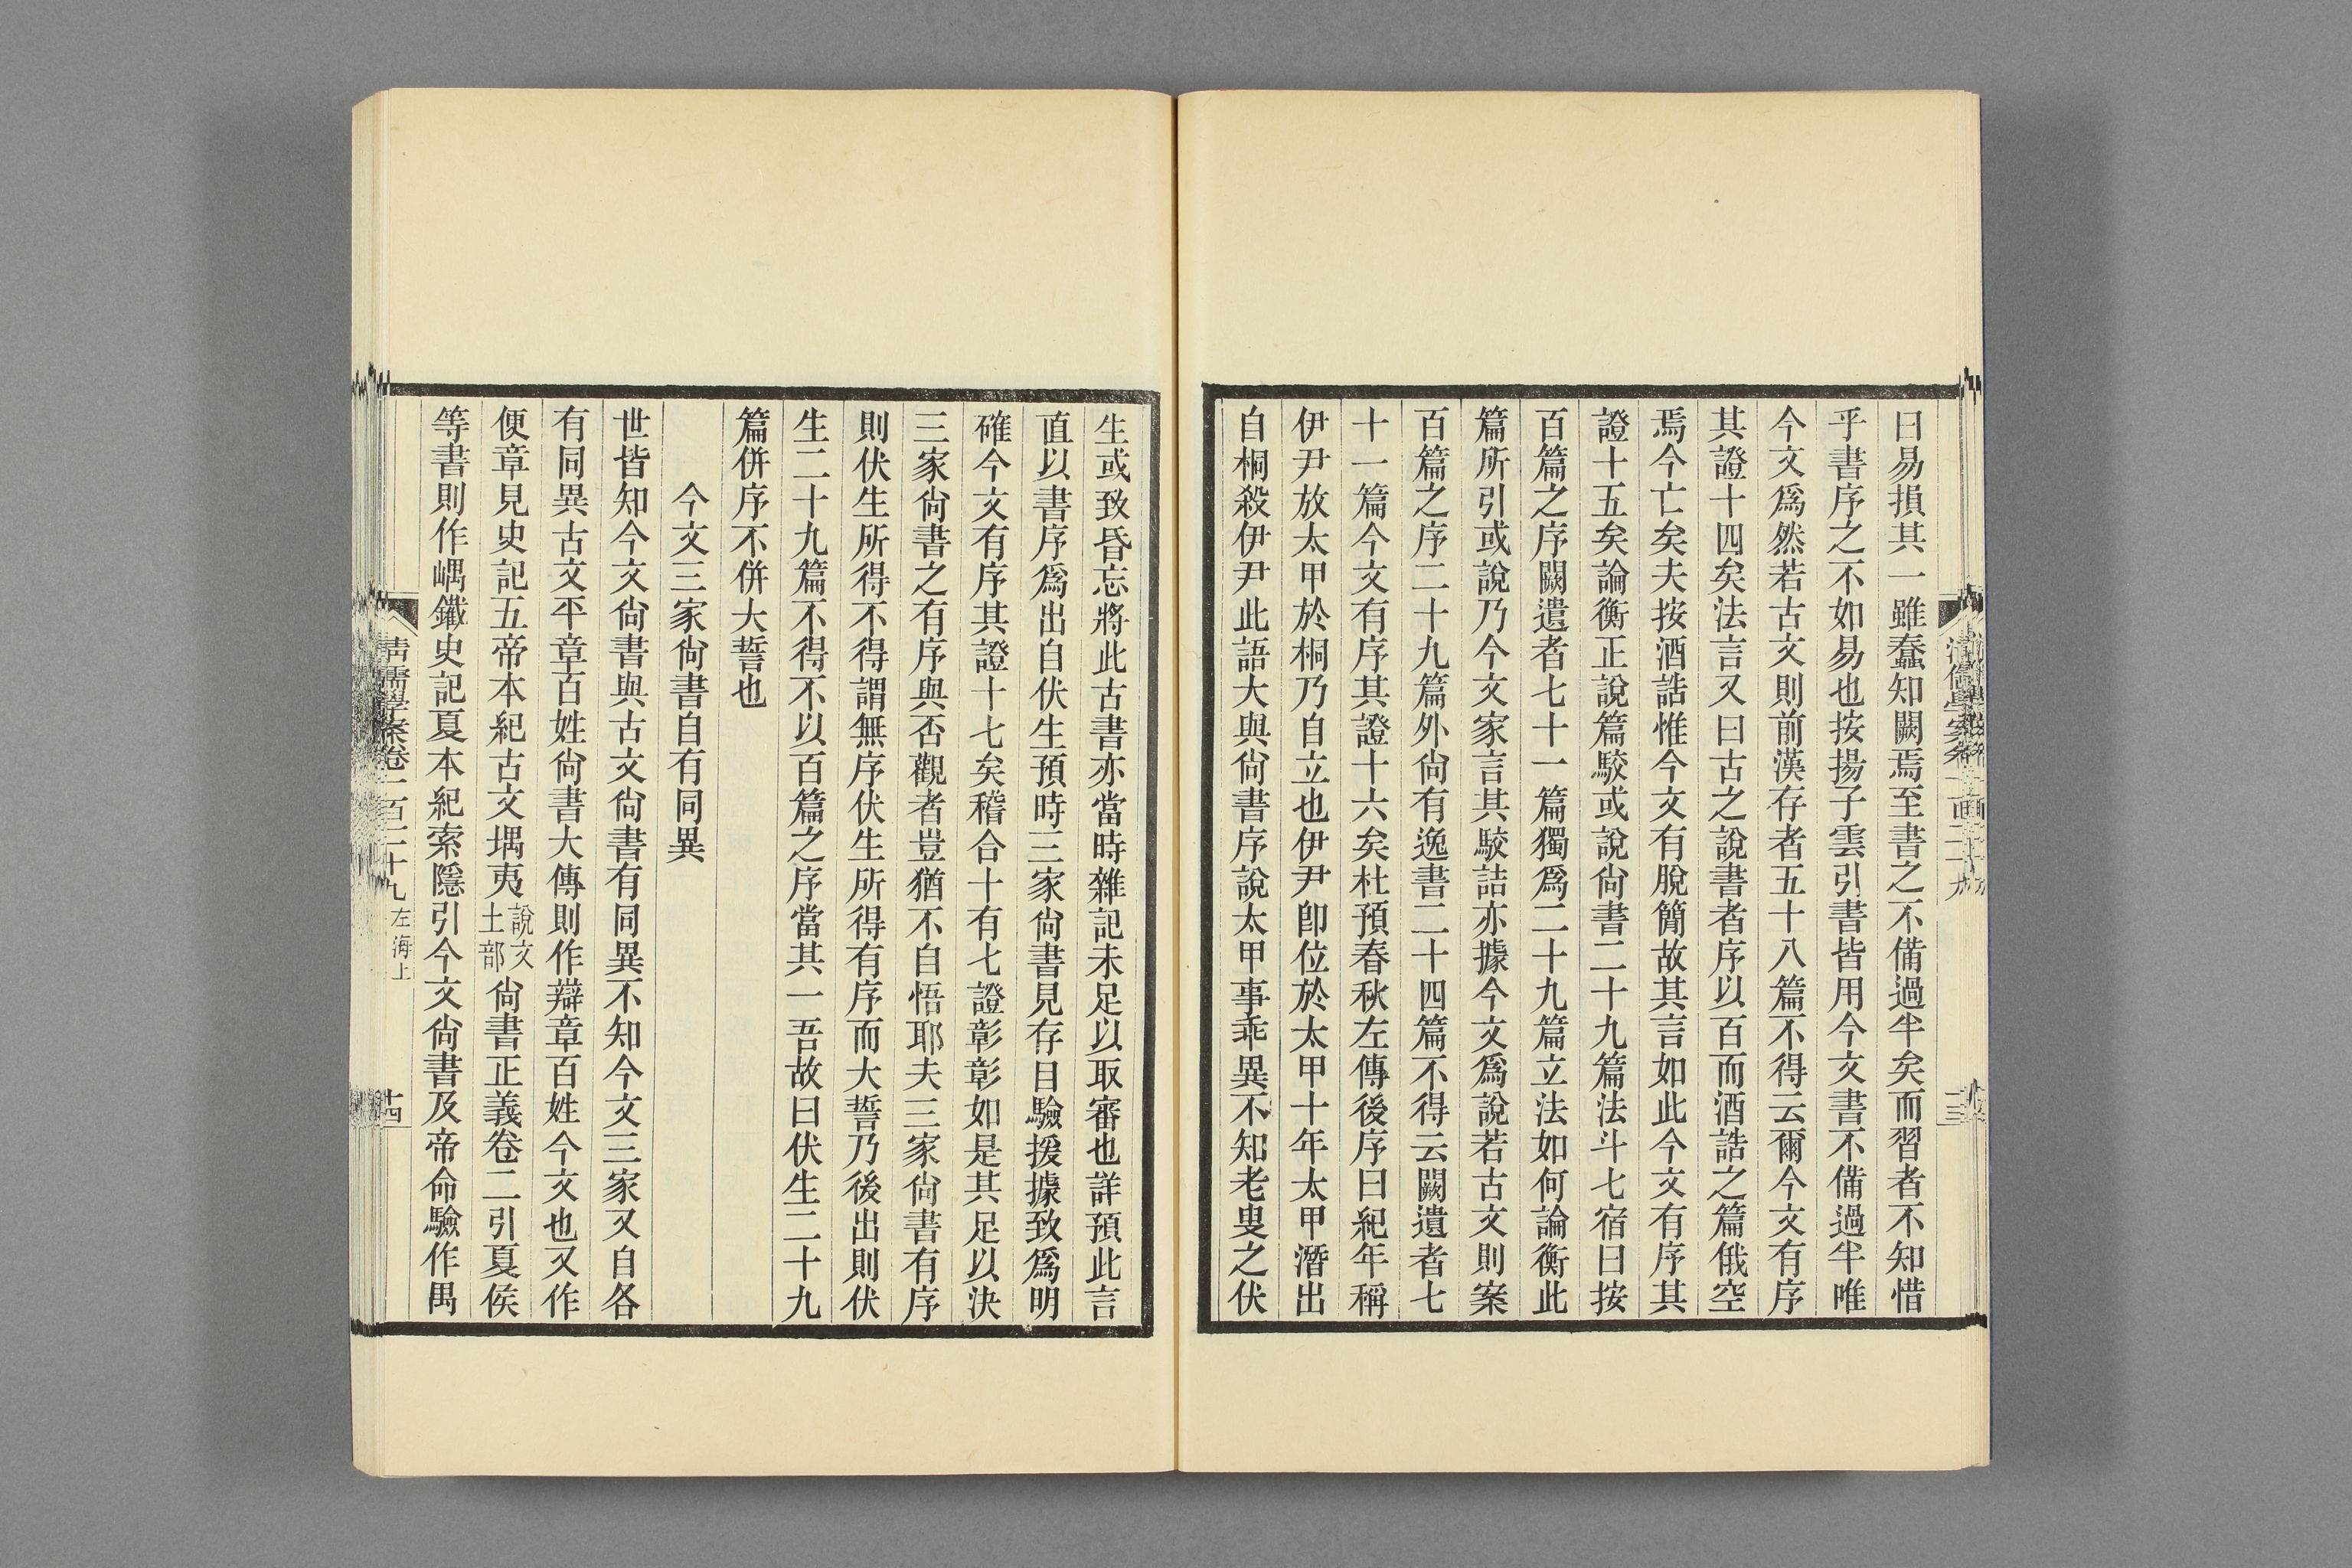 曰易損其一雖蠢知闕焉至書之不備過半矣而習者不知惜
乎書序之不如易也按揚子雲引書皆用今文書不備過半唯
今文爲然若古文則前漢存者五十八篇不得云爾今文有序
其證十四矣法言又曰古之說書者序以百而酒誥之篇俄空
焉今亡矣夫按酒誥惟今文有脫簡故其言如此今文有序其
證十五矣論衡正說篇駮或說尙書二十九篇法斗七宿曰按
百篇之序闕遺者七十一篇獨爲二十九篇立法如何論衡此
篇所引或說乃今文家言其駮詰亦據今文爲說若古文則案
百篇之序二十九篇外尙有逸書二十四篇不得云闕遺者七
十一篇今文有序其證十六矣杜預春秋左傳後序曰紀年稱
伊尹放太甲於桐乃自立也伊尹卽位於太甲十年太甲潛出
自桐殺伊尹此語大與尙書序說太甲事乖異不知老叟之伏
生或致昏忘將此古書亦當時雜記未足以取審也詳預此言
直以書序爲出自伏生預時三家尙書見存目驗援據致爲明
確今文有序其證十七矣稽合十有七證彰彰如是其足以決
三家尙書之有序與否觀者豈猶不自悟耶夫三家尙書有序
則伏生所得不得謂無序伏生所得有序而大誓乃後出則伏
生二十九篇不得不以百篇之序當其一吾故曰伏生二十九
篇併序不併大誓也
今文三家尙書自有同異
世皆知今文尙書與古文尙書有同異不知今文三家又自各
有同異古文平章百姓尙書大傳則作辯章百姓今文也又作
便章見史記五帝本紀古文堣夷說文土部尙書正義卷二引夏侯
等書則作嵎鐵史記夏本紀索隱引今文尙書及帝命驗作禺
清儒學案卷一百二十九 左海上
十四